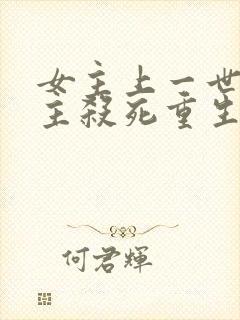 女主上一世
主殺死重生
何君輝